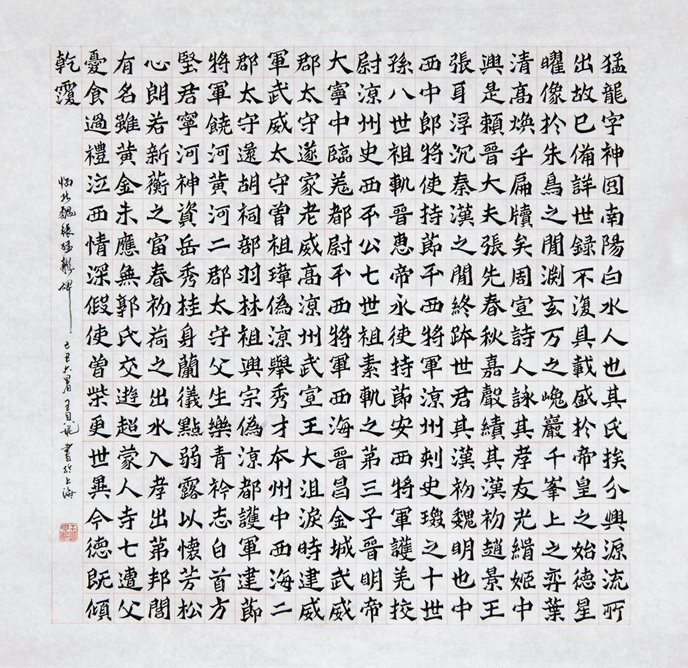 猛龍字神囧南陽白水人也其氏挨分興源流所
出故已備詳世録不復具載盛於帝皇之始德星
曜像於朱鳥之間淵玄万之巍巖千峯上之弈葉
清高煥乎扁牘矣周宣詩人詠其孝友光緝姬中
興是賴晉大夫張先春秋嘉聲績其漢初趙景王
張耳浮沉秦漢之間終跡世君其漢初魏明也中
西中郎將使持節平西將軍涼州刺史瓊之十世
孫八世祖軌晉惠帝永使持節安西將軍護羌挍
尉涼州史西平公七世祖素軌之第三子晉明帝
大寧中臨羗郡尉平西將軍西海晉昌金城武威
郡太守遂家老威高涼州武宣王大沮淚時建威
軍武威太守曾祖璋偽涼舉秀才本州中西海二
郡太守還胡祠部羽林祖興宗偽涼都護軍建節
將軍饒河黃河二郡太守父生樂青衿志白首方
堅君寧河神資岳秀桂身蘭儀點弱露以懷芳松
心朗若新蘅之富春初荷之出水入孝出第邦閭
有名雖黃金未應無郭氏交遊超蒙人寺七遭父
憂食過禮泣西情深假使曾柴更世異今德既傾
乾覆
臨北魏張猛龍碑 己丑大暑王書於上海